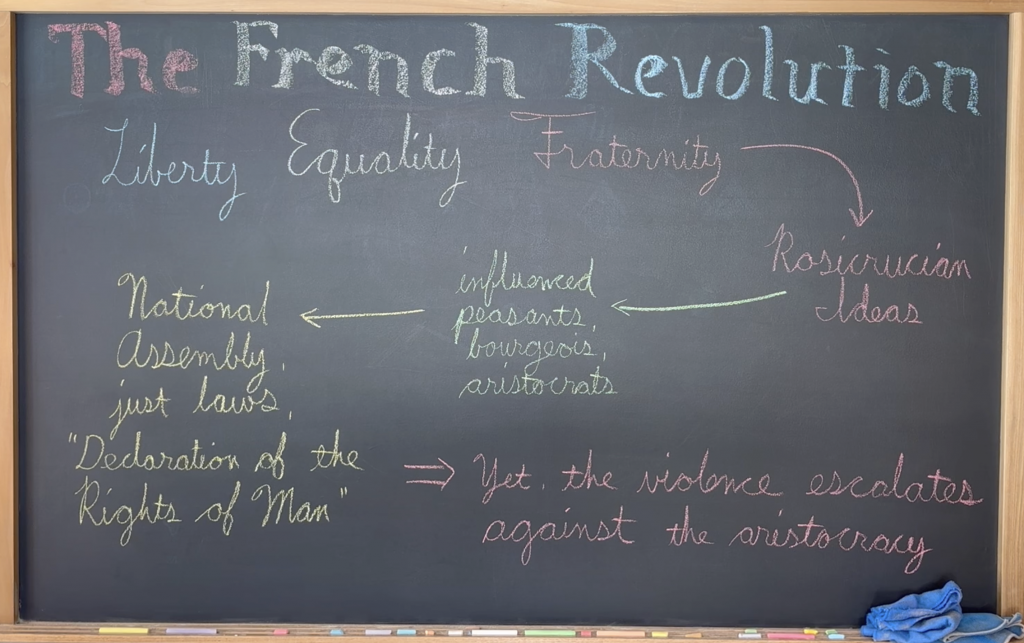 The French Revolution
Liberty Equality Fraternity
Rosicrucian
Ideas
influenced
peasants,
bourgeois,
aristocrats
National
Assembly,
just laws,
"Declaration of the
Rights of Man"
Yet, the violence escalates
against the aristocracy